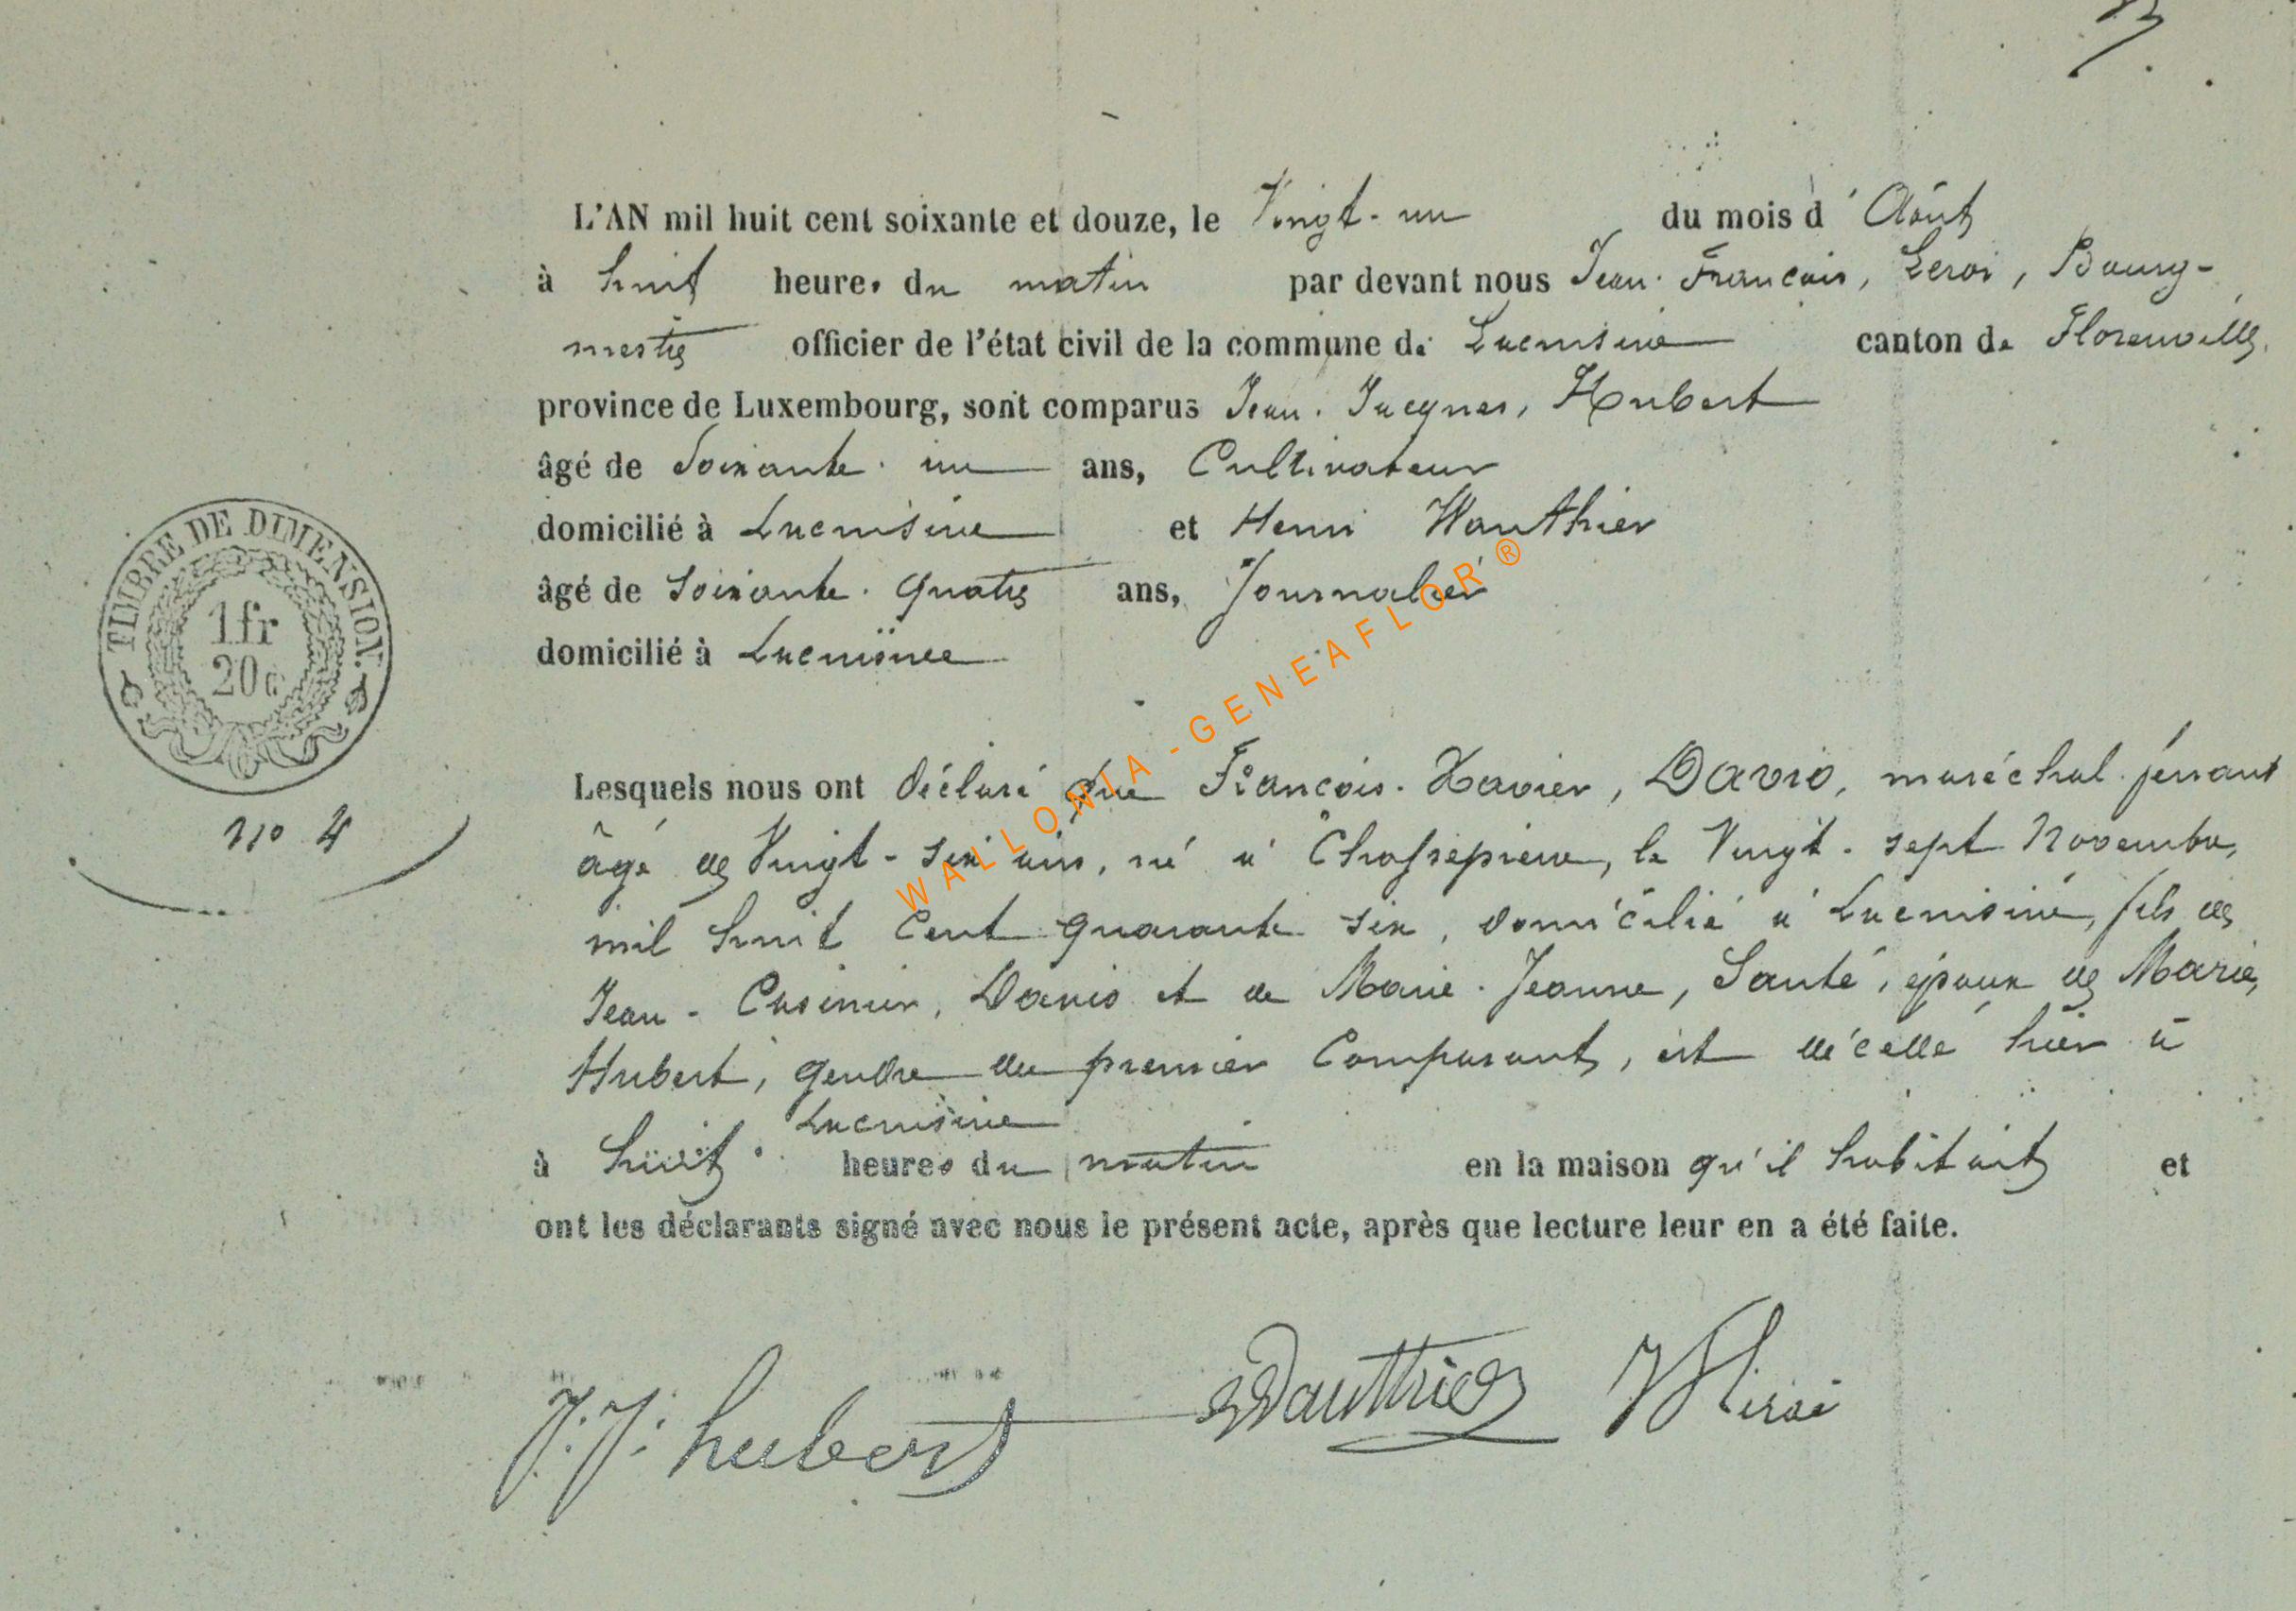 L'AN mil huit cent soixante et douze, le Vingt-un du mois d'Août
à huit heures du matin par devant nous Jean-François, Leroi, Bourg-
mestre officier de l'état civil de la commune de canton de Florenville,
province de Luxembourg, sont comparus Jean-Jacques, Hubert
âgé de Soixante-un ans, Cultivateur
domicilié à et Henri Wauthier
âgé de Soixante-quatre ans, Journalier
domicilié à
TIMBRE DE DIMENSION.
1 fr
20 c
no 4
Lesquels nous ont déclaré que François-Xavier, David, maréchal-ferrant
âgé de Vingt-six ans, né à Chassepierre, le Vingt-sept Novembre,
mil huit cent quarante six, domicilié à fils de
Jean-Casimir, David et de Marie-Jeanne, époux de Marie,
Hubert, gendre du premier Comparant, est décédé hier à
à huit heures du matin en la maison qu'il habitait et
ont les déclarants signé avec nous le présent acte, après que lecture leur en a été faite.
J. J. hubert Wauthier
WALLONIA-GENEAFLOR®